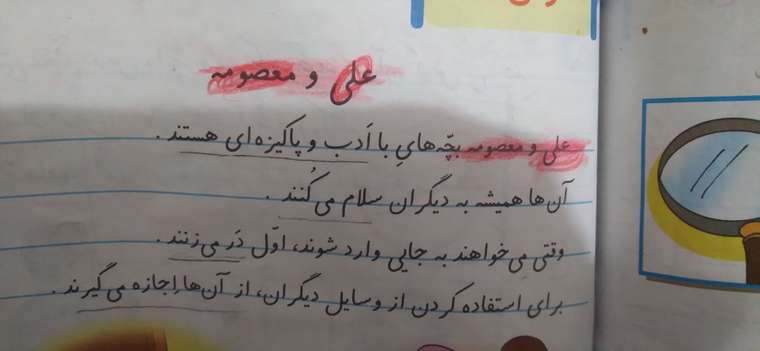 علی و معصومه
علی و معصومه بچّه‌هایِ با اَدب و پاکیزه‌ای هستند.
آن‌ها همیشه به دیگران سلام می‌کُنند.
وقتی می‌خواهند به جایی وارد شوند، اوّل دَر می‌زنند.
برای استفاده کردن از وسایل دیگران، از آن‌ها اِجازه می‌گیرند.